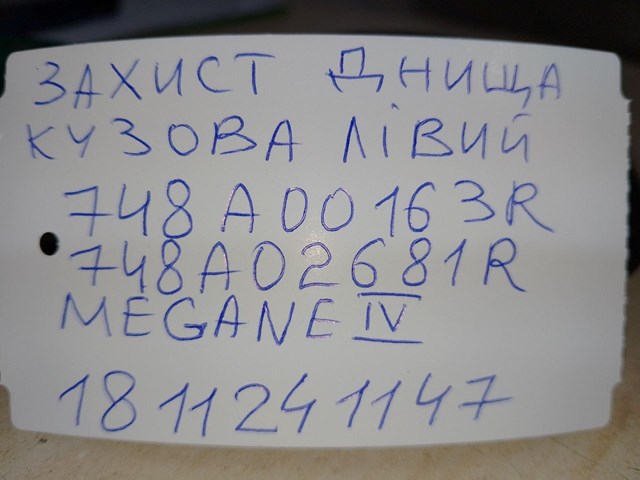 ЗАХИСТ ДНИЩА
КУЗОВА ЛІВИЙ
748A00163R
748A02681R
MEGANE IV
18112411​47